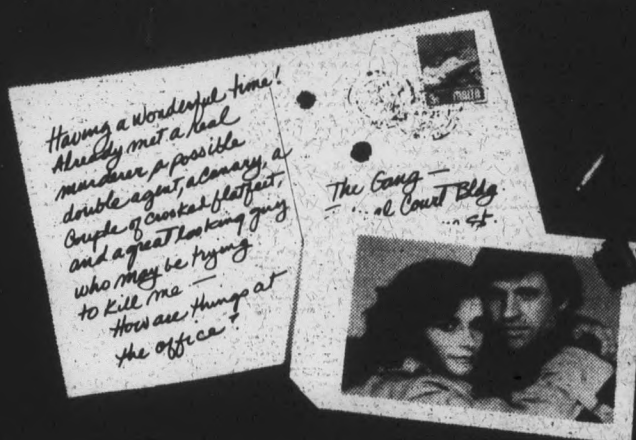 Having a wonderful time!
Already met a real
murderer, a possible
double agent, a canary, a
couple of crooked flatfeet,
and a great looking guy
who may be trying
to kill me —
How are things at
the office?
The Gang —
Court Bldg
St.